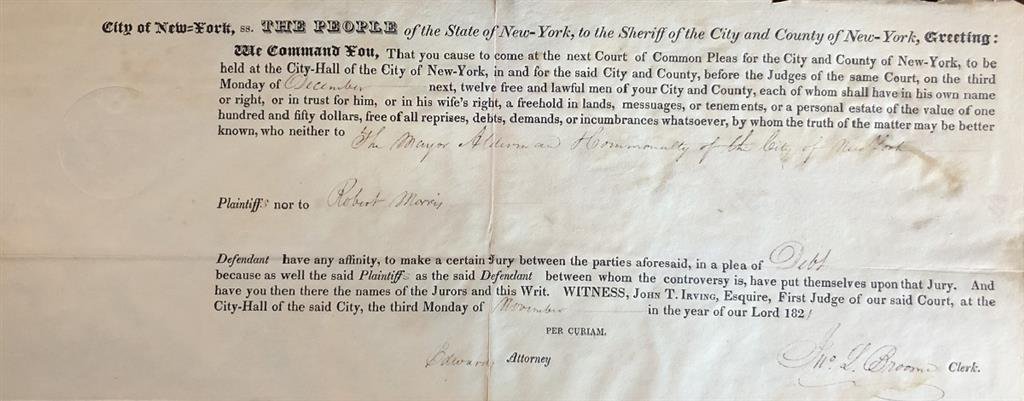 City of New=York, ss. THE PEOPLE of the State of New-York, to the Sheriff of the City and County of New-York, Greeting:
We Command You, That you cause to come at the next Court of Common Pleas for the City and County of New-York, to be
held at the City-Hall of the City of New-York, in and for the said City and County, before the Judges of the same Court, on the third
Monday of December next, twelve free and lawful men of your City and County, each of whom shall have in his own name
or right, or in trust for him, or in his wife's right, a freehold in lands, messuages, or tenements, or a personal estate of the value of one
hundred and fifty dollars, free of all reprises, debts, demands, or incumbrances whatsoever, by whom the truth of the matter may be better
known, who neither to The Mayor Aldermen and Commonalty of the City of New York
Plaintiffs nor to Robert Morris
Defendant have any affinity, to make a certain Jury between the parties aforesaid, in a plea of Debt
because as well the said Plaintiffs as the said Defendant between whom the controversy is, have put themselves upon that Jury. And
have you then there the names of the Jurors and this Writ. WITNESS, JOHN T. IRVING, Esquire, First Judge of our said Court, at the
City-Hall of the said City, the third Monday of November in the year of our Lord 1821
PER CURIAM.
Edwards Attorney
Jno. L. Broome Clerk.